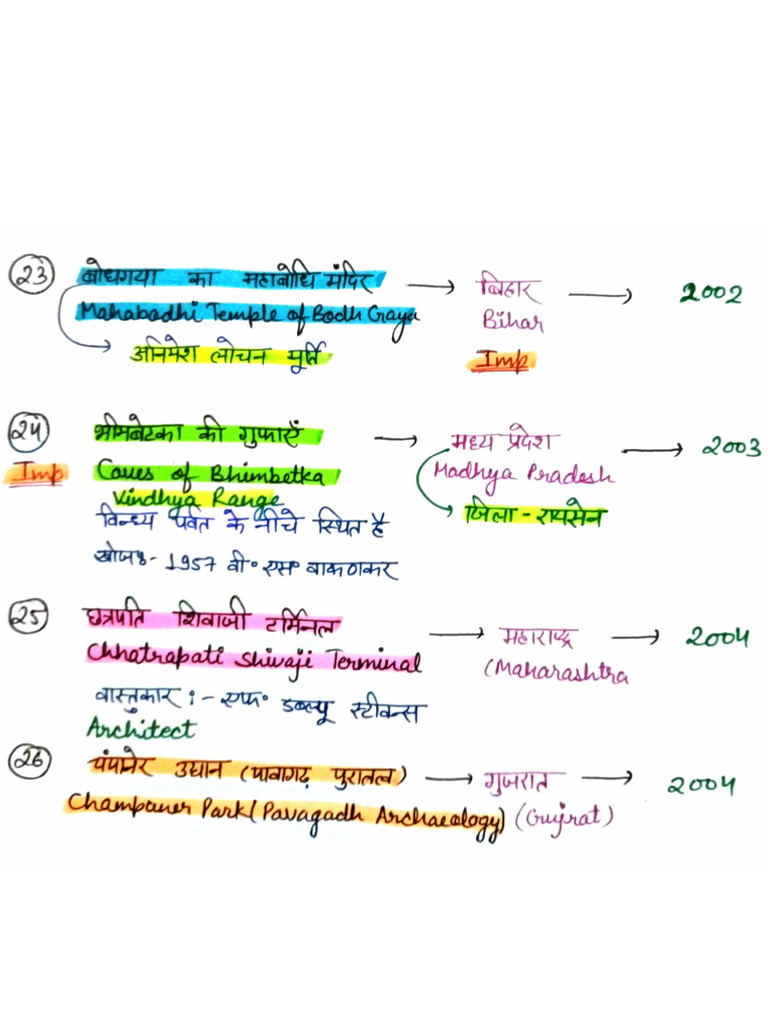 23 बोधगया का महाबोधि मंदिर → बिहार → 2002
Mahabadhi Temple of Bodh Gaya Bihar
अनिमेश लोचन मूर्ति Imp
24 भीमबेटका की गुफाएँ → मध्य प्रदेश → 2003
Imp Caves of Bhimbetka Madhya Pradesh
Vindhya Range जिला - रायसेन
विन्ध्य पर्वत के नीचे स्थित है
खोजः- 1957 वी॰ एस॰ वाकणकर
25 छत्रपति शिवाजी टर्मिनल → महाराष्ट्र → 2004
Chhatrapati Shivaji Terminal (Maharashtra
वास्तुकार :- एफ॰ डब्ल्यू स्टीवन्स
Architect
26 चंपानेर उद्यान (पावागढ़ पुरातत्व) → गुजरात → 2004
Champaner Park (Pavagadh Archaeology) (Gujrat)